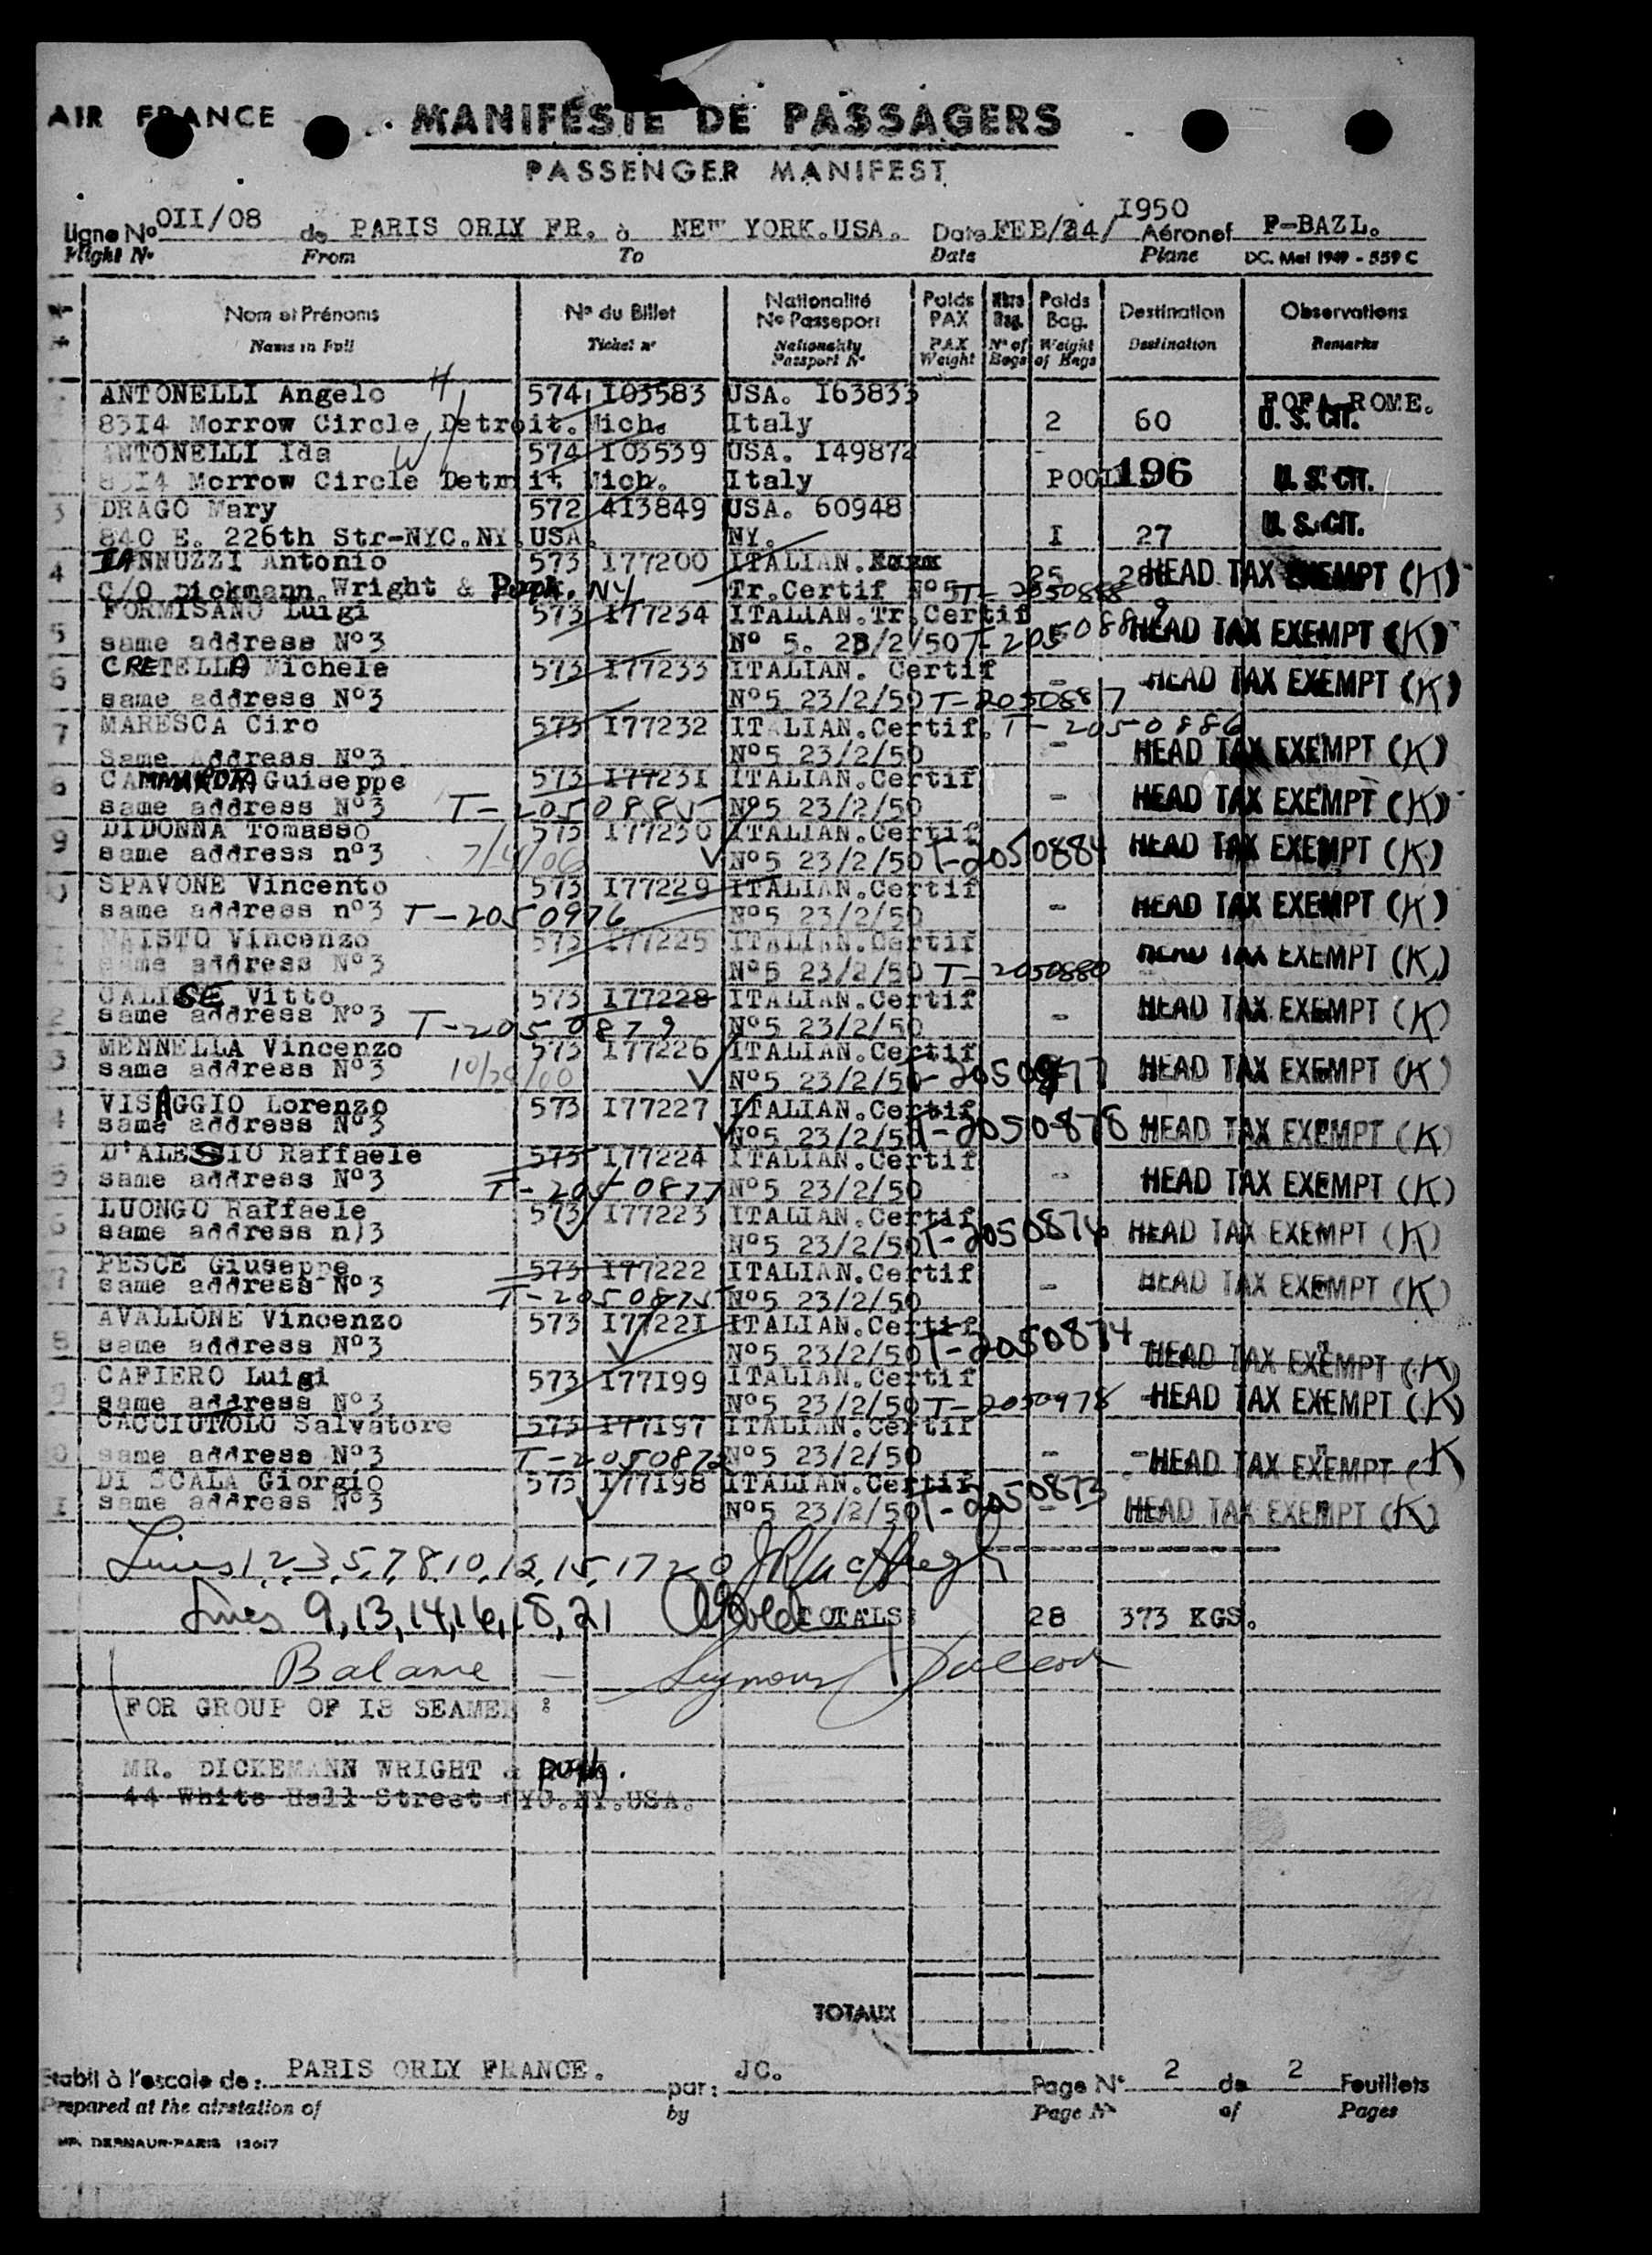 AIR FRANCE
MANIFESTE DE PASSAGERS
PASSENGER MANIFEST
Ligne No OII/08 de PARIS ORLY FR. à NEW YORK.USA. Date FEB/24/ 1950 Aéronef F-BAZL.
Flight No From To Date Plane DC. Mai 1949 - 559 C
Nom et Prénoms No du Billet Nationalité No Passeport Poids PAX Nbre Bag. Poids Bag. Destination Observations
Name in Full Ticket no Nationality Passport No PAX Weight No of Bags Weight of Bags Destination Remarks
ANTONELLI Angelo H 574 I03583 USA. I63833 FOFA ROME.
83I4 Morrow Circle Detroit. Mich. Italy 2 60 U. S. CIT.
ANTONELLI Ida W 574 I03539 USA. I49872
83I4 Morrow Circle Detroit Mich. Italy POOL 196 U. S. CIT.
3 DRAGO Mary 572 4I3849 USA. 60948
840 E. 226th Str-NYC.NY.USA. NY. I 27 U. S. CIT.
4 IANNUZZI Antonio 573 I77200 ITALIAN. 25 HEAD TAX EXEMPT (K)
C/O Dickmann.Wright & NY Tr.Certif No5 T-2050888
5 FORMISANO Luigi 573 I77234 ITALIAN.Tr.Certif
same address No3 No 5. 23/2/50 T-2050889 HEAD TAX EXEMPT (K)
6 CRETELLA Michele 573 I77233 ITALIAN. Certif
same address No3 No5 23/2/50 T-2050887 - HEAD TAX EXEMPT (K)
7 MARESCA Ciro 573 I77232 ITALIAN.Certif. T-2050886
Same Address No3 No5 23/2/50 - HEAD TAX EXEMPT (K)
8 CAMMAROTA Guiseppe 573 I7723I ITALIAN.Certif
same address No3 T-2050885 No5 23/2/50 - HEAD TAX EXEMPT (K)
9 DIDONNA Tomasso 573 I77230 ITALIAN.Certif
same address no3 7/4/06 No5 23/2/50 T-2050884 HEAD TAX EXEMPT (K)
0 SPAVONE Vincento 573 I77229 ITALIAN.Certif
same address no3 T-2050976 No5 23/2/50 - HEAD TAX EXEMPT (K)
MAISTO Vincenzo 573 I77225 ITALIAN.Certif
same address No3 No5 23/2/50 T-2050880 HEAD TAX EXEMPT (K)
2 CALISE Vitto 573 I77228 ITALIAN.Certif
same address No3 T-2050879 No5 23/2/50 - HEAD TAX EXEMPT (K)
3 MENNELLA Vincenzo 573 I77226 ITALIAN.Certif
same address No3 No5 23/2/50 HEAD TAX EXEMPT (K)
4 VISAGGIO Lorenzo 573 I77227 ITALIAN.Certif
same address No3 No5 23/2/50 T-2050878 HEAD TAX EXEMPT (K)
5 D'ALESSIO Raffaele 573 I77224 ITALIAN.Certif
same address No3 T-2050877 No5 23/2/50 - HEAD TAX EXEMPT (K)
6 LUONGO Raffaele 573 I77223 ITALIAN.Certif
same address n)3 No5 23/2/50 T-2050876 HEAD TAX EXEMPT (K)
7 PESCE Giuseppe 573 I77222 ITALIAN.Certif
same address No3 T-2050875 No5 23/2/50 - HEAD TAX EXEMPT (K)
8 AVALLONE Vincenzo 573 I7722I ITALIAN.Certif
same address No3 No5 23/2/50 T-2050874 HEAD TAX EXEMPT (K)
9 CAFIERO Luigi 573 I77I99 ITALIAN.Certif
same address No3 No5 23/2/50 T-2050978 HEAD TAX EXEMPT (K)
CACCIUTOLO Salvatore 573 I77I97 ITALIAN.Certif
0 same address No3 T-2050872 No5 23/2/50 - HEAD TAX EXEMPT (K
DI SCALA Giorgio 573 I77I98 ITALIAN.Certif
I same address No3 No5 23/2/50 T-2050873 - HEAD TAX EXEMPT (K)
Lines 1,2,3,5,7,8,10,12,15,17 20
Lines 9,13,14,16,18,21 TOTALS: 28 373 KGS.
Balance — Seymour
FOR GROUP OF I8 SEAMEN :
MR. DICKEMANN WRIGHT & PUGH.
44 White Hall Street NYC.NY.USA.
TOTAUX
Etabli à l'escale de: PARIS ORLY FRANCE. par: JC. Page No 2 de 2 Feuillets
Prepared at the airstation of by Page No of Pages
IMP. DERNAUR-PARIS 12617